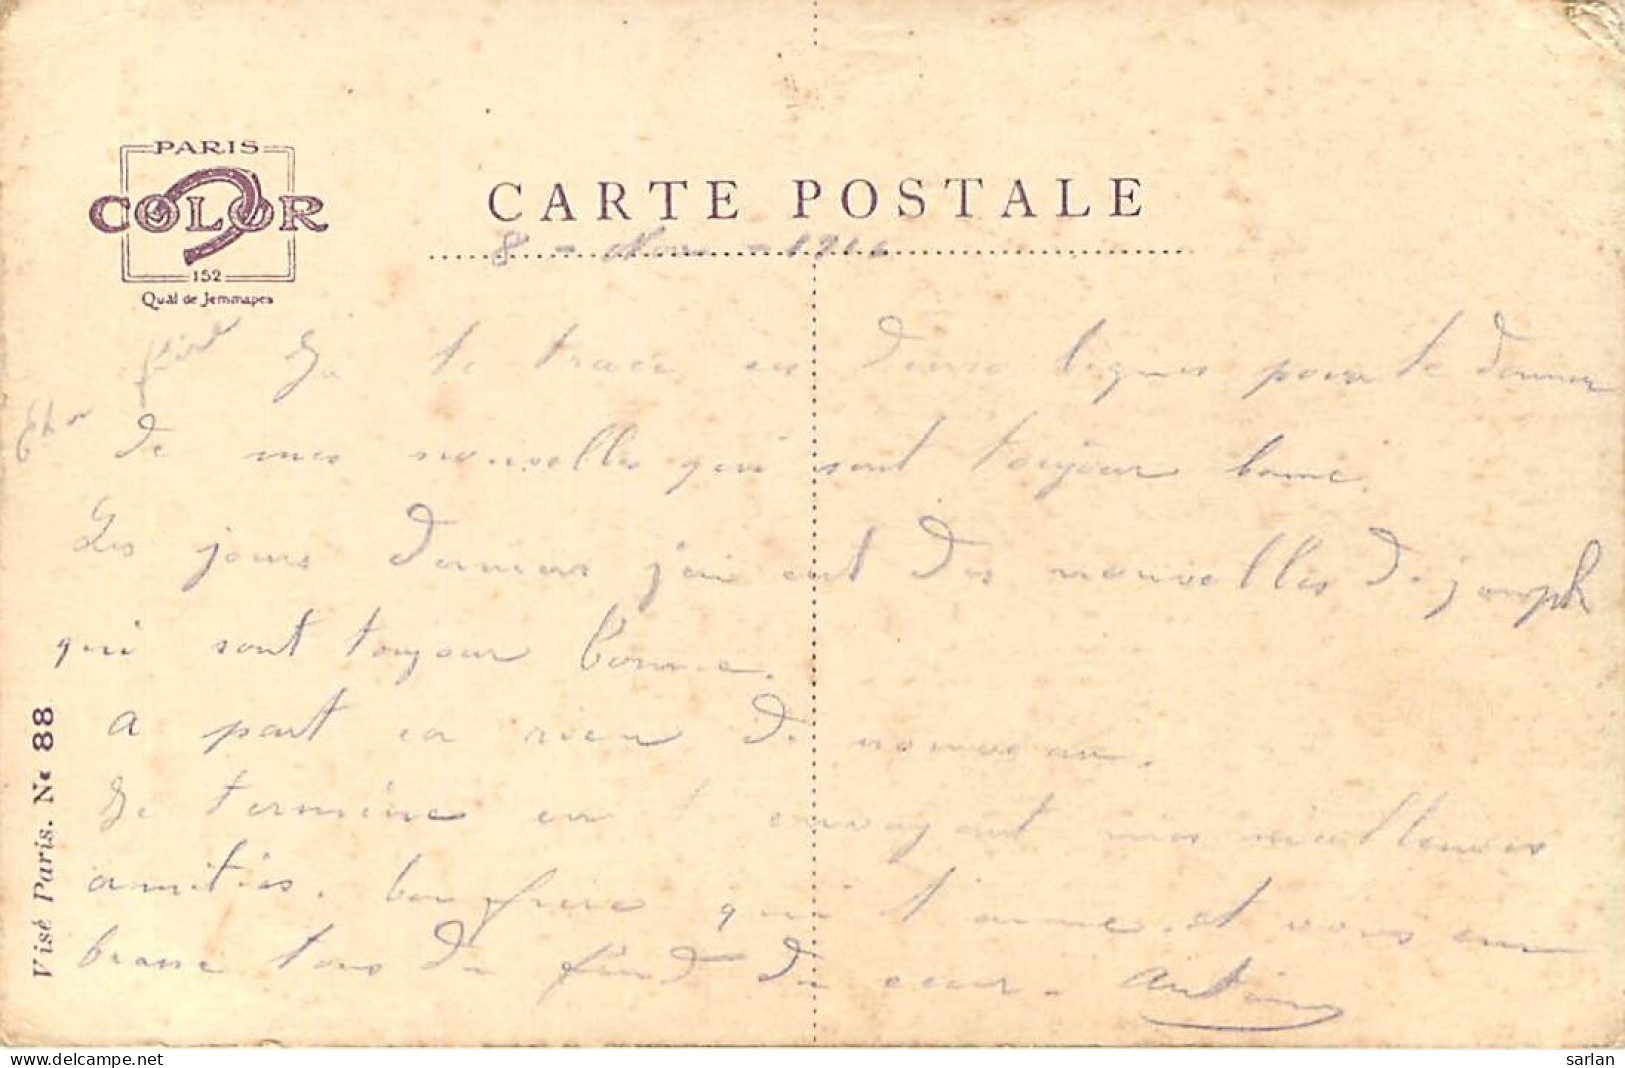 PARIS
COLOR
152
Quai de Jemmapes
CARTE POSTALE
8 - Nov - 19
Cher frère
Je te trace ces deux lignes pour te donner
de mes nouvelles qui sont toujour bonne.
Les jours derniers j'ai eut des nouvelles de joseph
qui sont toujour bonne.
a part ca rien de nouveau.
Je termine en t envoyant mes meilleures
amitiés. ton frère qui t'aime. et vous em
brasse tous du fond du cœur. Antoine
Visé Paris. No 88
sarlan